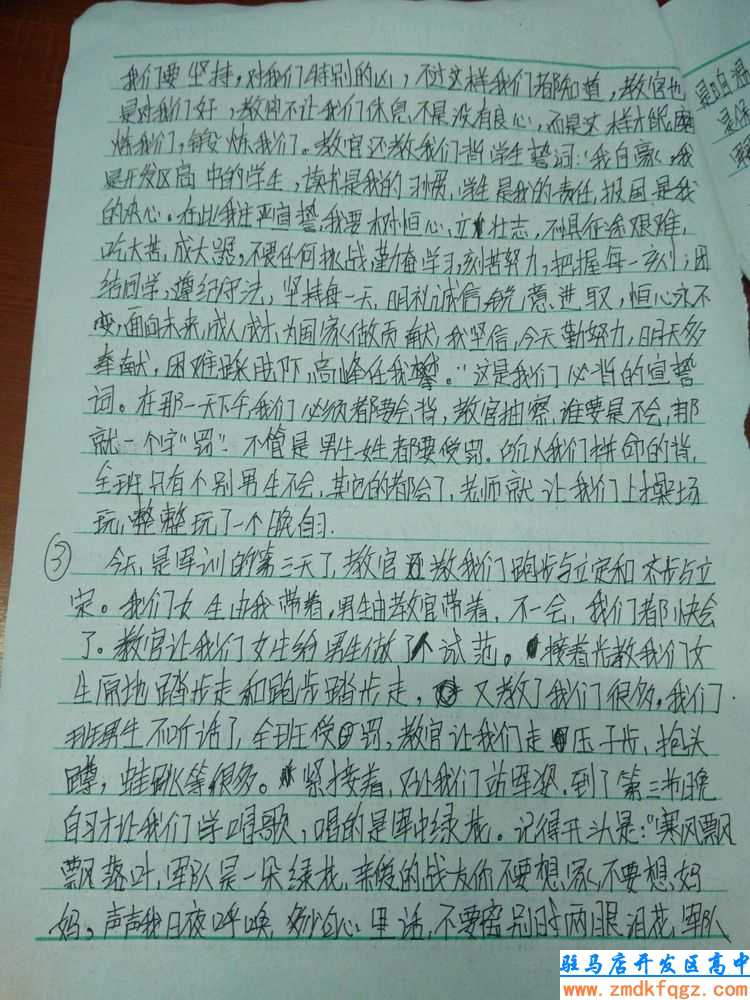 我们要坚持,对我们特别的凶,不过这样我们都知道,教官也
是对我们好,教官不让我们休息,不是没有良心,而是这样才能磨
炼我们,锻炼我们。教官还教我们背学生誓词:"我自豪,我
是开发区高中的学生,读书是我的习惯,学生是我的责任,报国是我
的决心。在此我庄严宣誓,我要树恒心,立壮志,不惧征途艰难,
吃大苦,成大器,不畏任何挑战,勤奋学习,刻苦努力,把握每一刻;团
结同学,遵纪守法,坚持每一天,明礼诚信,锐意进取,恒心永不
变,面向未来,成人成才,为国家做贡献,我坚信,今天勤努力,明天多
奉献,困难踩脚下,高峰任我攀。"这是我们必背的宣誓
词。在那一天下午,我们必须都要会背,教官抽察,谁要是不会,那
就一个字"罚"不管是男生女生都要受罚.所以我们拼命的背,
全班只有个别男生不会,其它的都会了,老师就让我们上操场
玩,整整玩了一个晚自习.
③ 今天,是军训的第三天了,教官教我们跑步与立定和齐步与立
定。我们女生由我带着,男生由教官带着,不一会,我们都快会
了。教官让我们女生给男生做了个试范。接着先教我们女
生原地踏步走和跑步踏步走,又教了我们很多,我们
班男生不听话了,全班受罚,教官让我们走压子步,抱头
蹲,蛙跳等很多。紧接着,又让我们站军姿.到了第三节晚
自习才让我们学唱歌,唱的是军中绿花。记得开头是:"寒风飘
飘落叶,军队是一朵绿花,亲爱的战友你不要想家,不要想妈
妈,声声我日夜呼唤,多少句心里话,不要离别时两眼泪花,军队
是响
驻马店开发区高中
www.zmdkfqgz.com